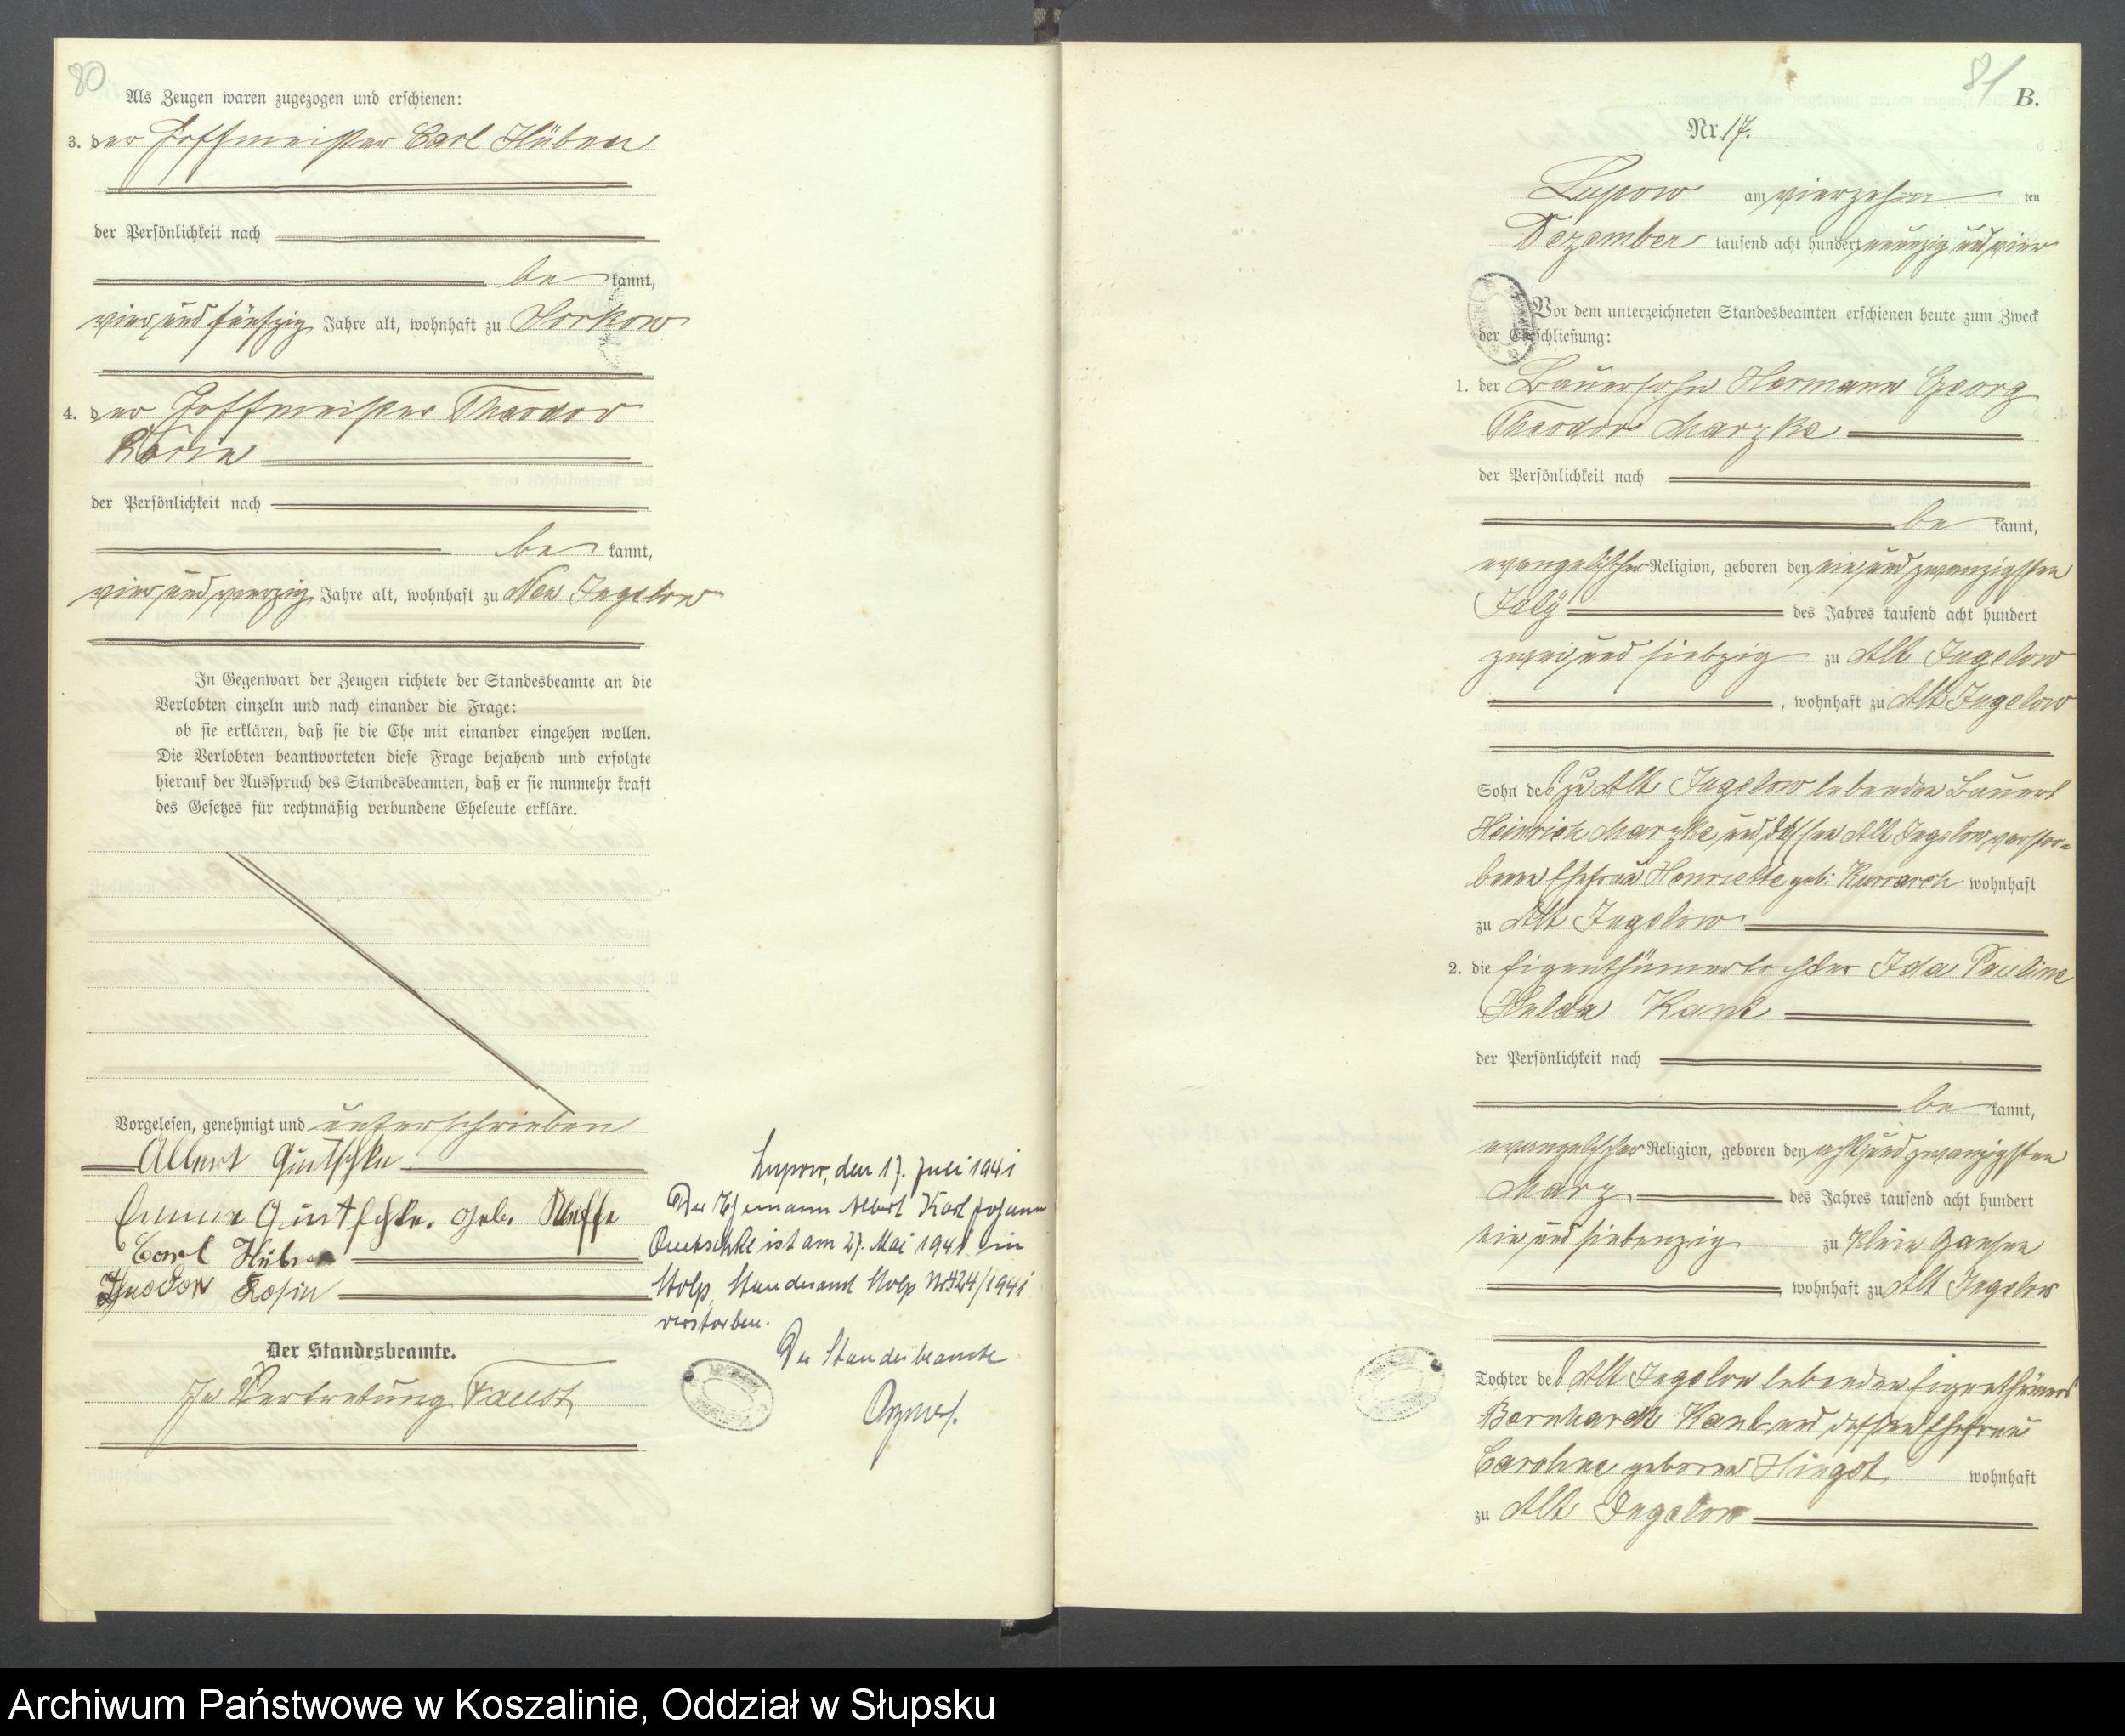 80
Als Zeugen waren zugezogen und erschienen:
3. der Hoffmeister Carl Hüben
der Persönlichkeit nach
be kannt,
vier und fünfzig Jahre alt, wohnhaft zu
4. der Hoffmeister Theodor
Rosin
der Persönlichkeit nach
be kannt,
vier und vierzig Jahre alt, wohnhaft zu Neu Jugelow
In Gegenwart der Zeugen richtete der Standesbeamte an die
Verlobten einzeln und nach einander die Frage:
ob sie erklären, daß sie die Ehe mit einander eingehen wollen.
Die Verlobten beantworteten diese Frage bejahend und erfolgte
hierauf der Ausspruch des Standesbeamten, daß er sie nunmehr kraft
des Gesetzes für rechtmäßig verbundene Eheleute erkläre.
Vorgelesen, genehmigt und unterschrieben
Albert Quetschke
Emma Quetschke, geb.
Carl Hüben
Theodor Rosin
Der Standesbeamte.
In Vertretung Faust
Lupow, den 17. Juli 1941
Der Ehemann Albert Karl Johann
Quetschke ist am 27. Mai 1941 in
Stolp, Standesamt Stolp Nr 424/1941
verstorben.
Der Standesbeamte
81
B.
Nr. 17.
Lupow am vierzehn ten
Dezember tausend acht hundert neunzig und vier
Vor dem unterzeichneten Standesbeamten erschienen heute zum Zweck
der Eheschließung:
1. der Bauersohn Hermann Georg
Theodor Marzke
der Persönlichkeit nach
be kannt,
evangelischer Religion, geboren den ein und zwanzigsten
July des Jahres tausend acht hundert
zwei und siebzig zu Alt Jugelow
, wohnhaft zu Alt Jugelow
Sohn des zu Alt Jugelow lebenden Bauers
Heinrich Marzke und dessen Alt Jugelow verstor=
benen Ehefrau Henriette geb: wohnhaft
zu Alt Jugelow
2. die Eigenthümertochter Ida Pauline
Hulda Kank
der Persönlichkeit nach
be kannt,
evangelischer Religion, geboren den acht und zwanzigsten
März des Jahres tausend acht hundert
ein und siebenzig zu Klein Gansen
, wohnhaft zu Alt Jugelow
Tochter des Alt Jugelow lebenden Eigenthümers
Bernhardt Kank und dessen Ehefrau
Caroline geborne Hingst wohnhaft
zu Alt Jugelow
Archiwum Państwowe w Koszalinie, Oddział w Słupsku